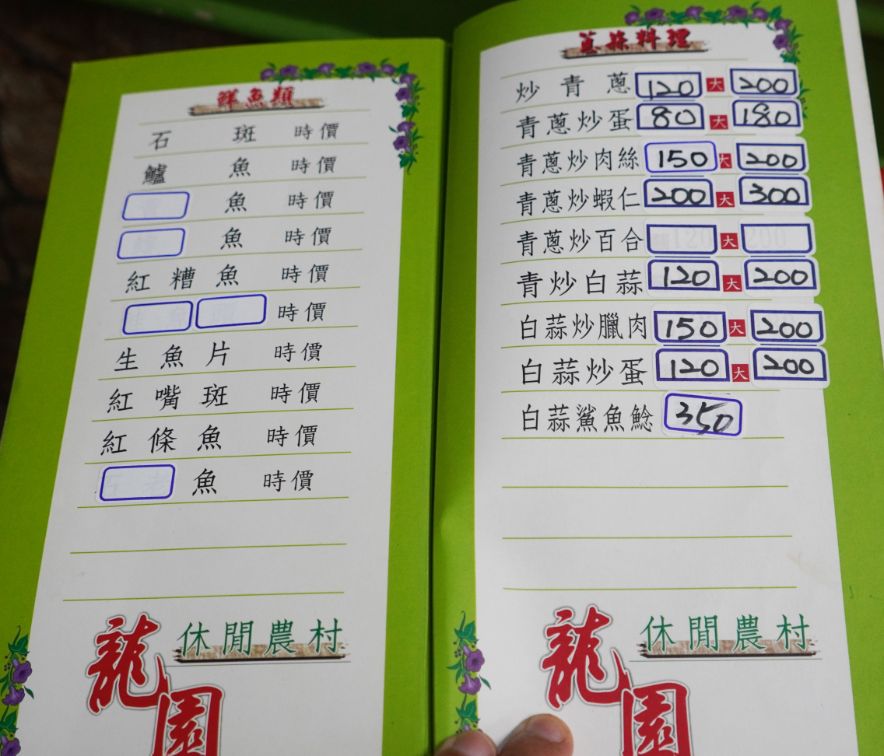 鮮魚類
石斑 時價
鱸魚 時價
魚 時價
魚 時價
紅糟魚 時價
時價
生魚片 時價
紅嘴斑 時價
紅條魚 時價
魚 時價
休閒農村
龍園
蔥蒜料理
炒青蔥 120 大 200
青蔥炒蛋 80 大 180
青蔥炒肉絲 150 大 200
青蔥炒蝦仁 200 大 300
青蔥炒百合 大
青炒白蒜 120 大 200
白蒜炒臘肉 150 大 200
白蒜炒蛋 120 大 200
白蒜鯊魚鯰 350
休閒農村
龍園